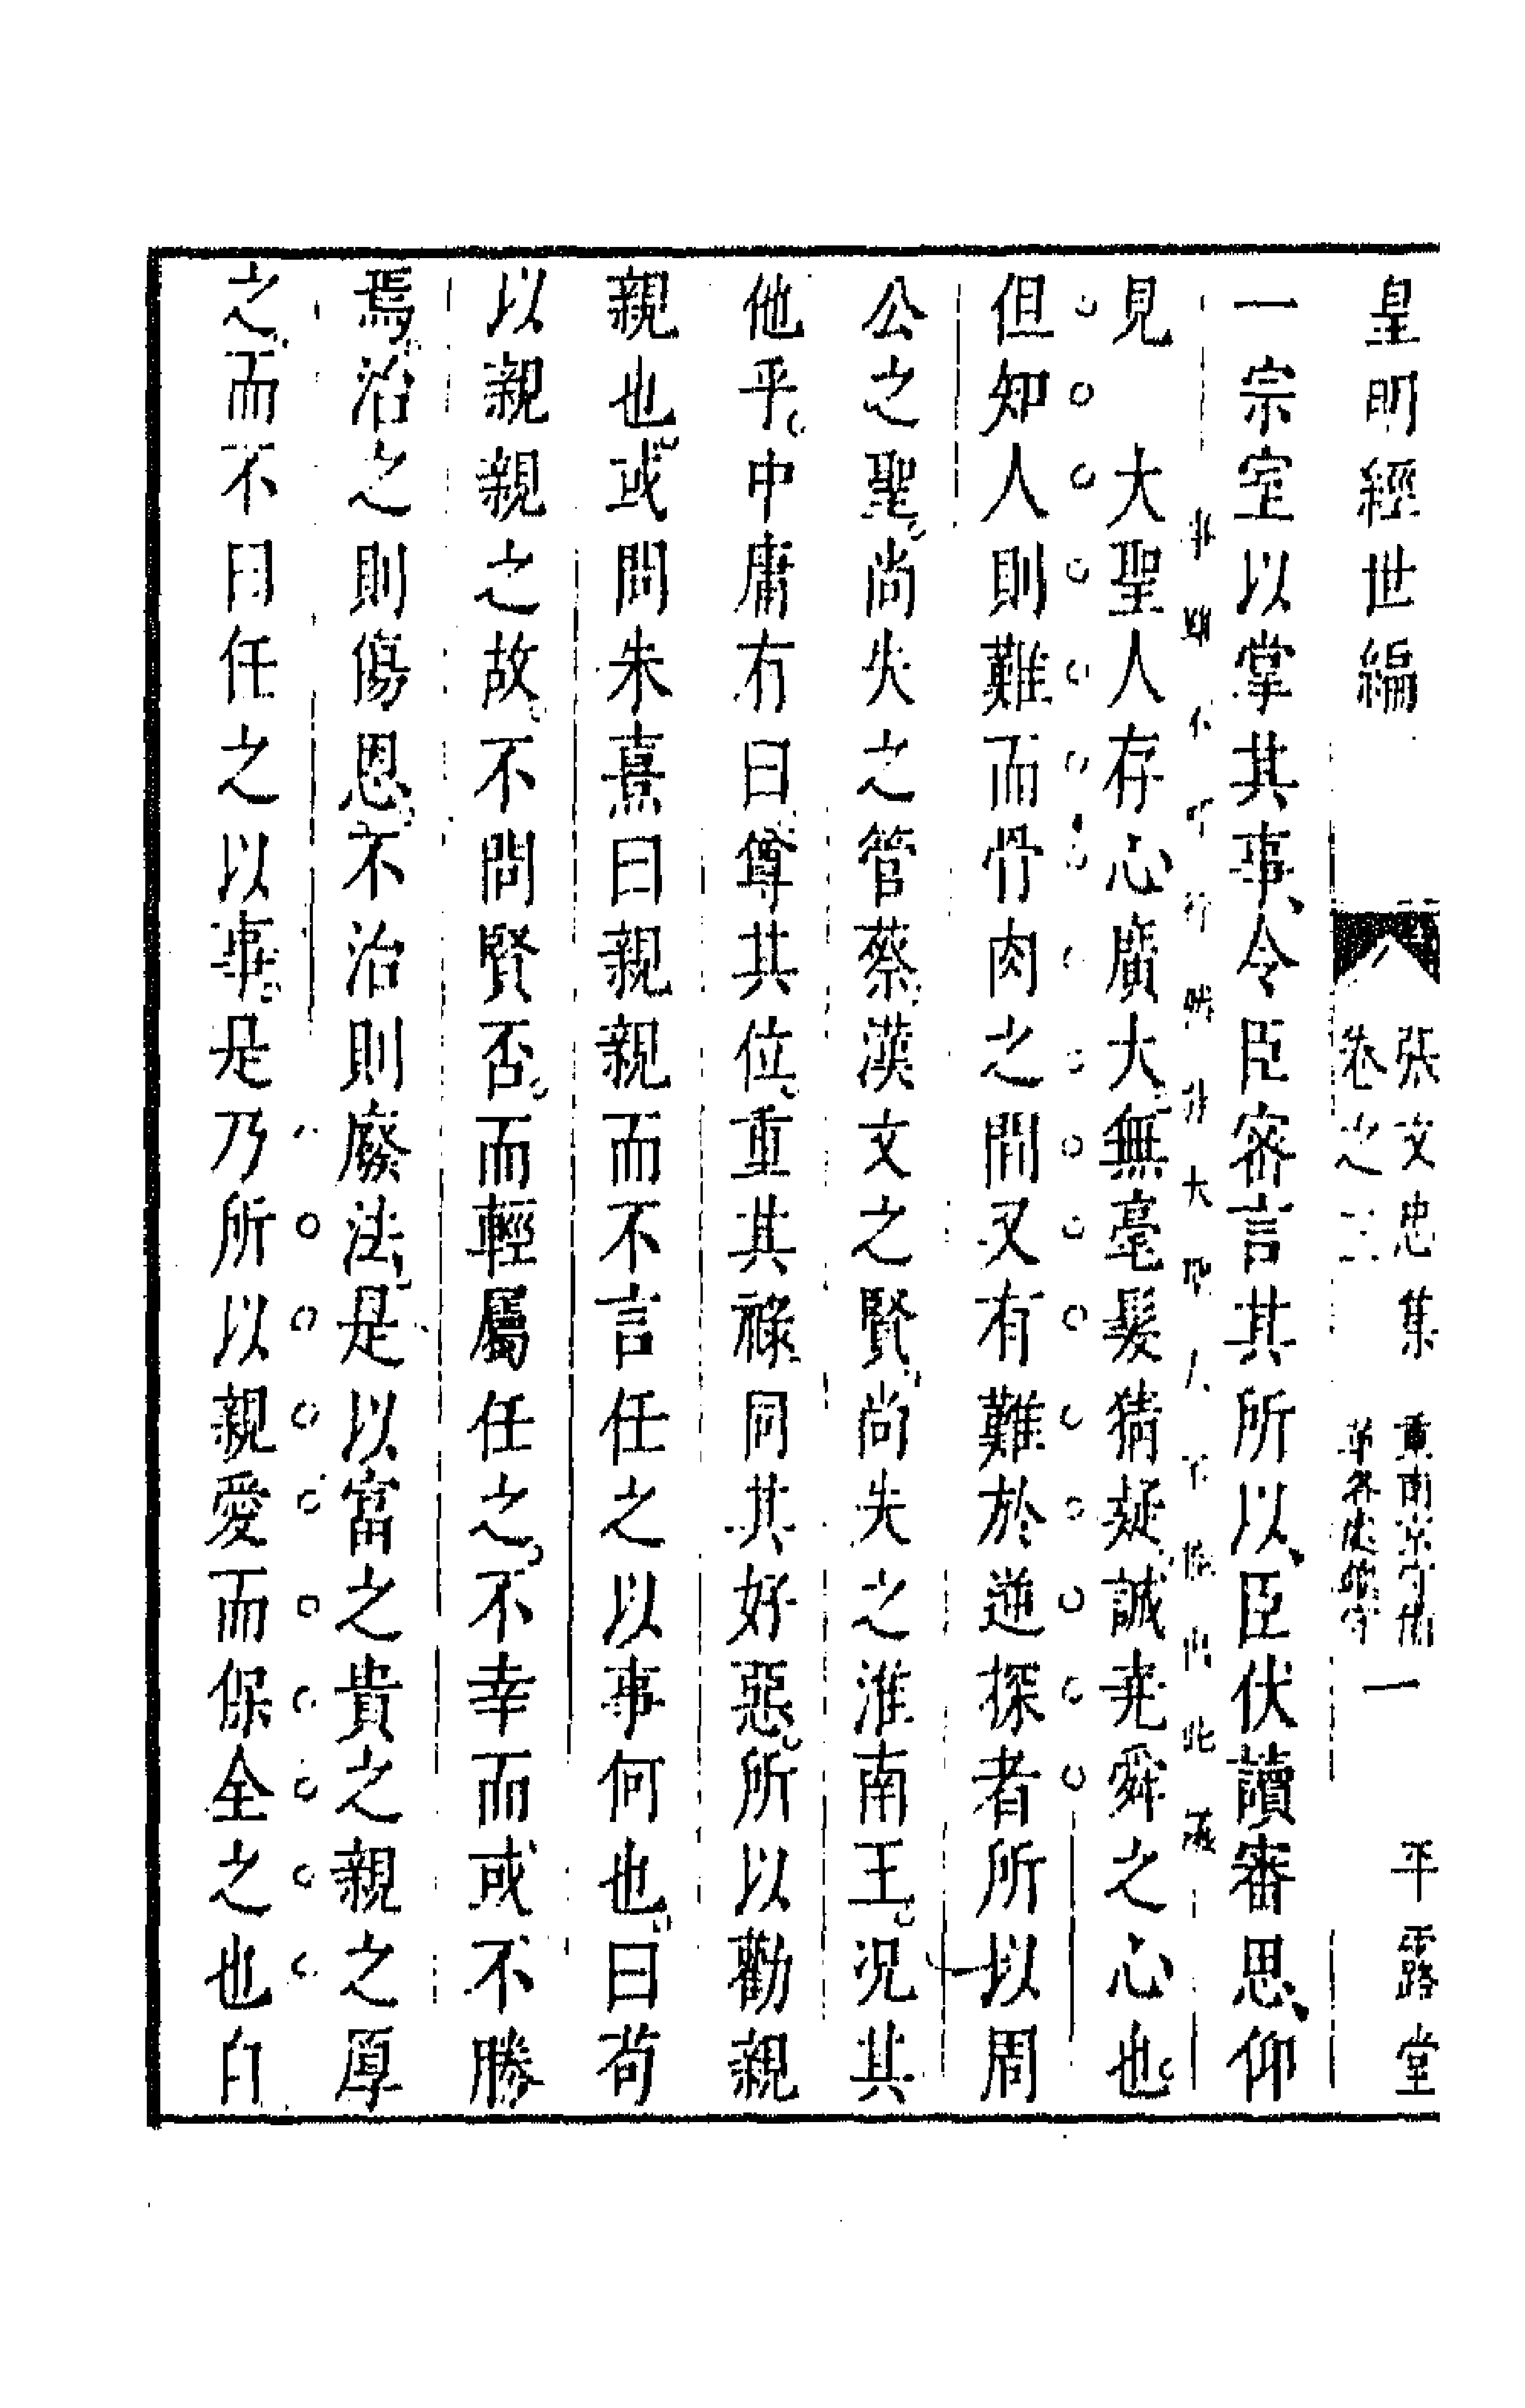 皇明經世編
張文忠集
卷之三
重南京守備
革各處鎮守
一
平露堂
一宗室以掌其事令臣密言其所以臣伏讀審思仰
事雖不可行然非大聖人不能出此議
見　大聖人存心廣大無毫髮猜疑誠堯舜之心也
但知人則難而骨肉之間又有難於逆探者所以周
公之聖尚失之管蔡漢文之賢尚失之淮南王況其
他乎中庸有曰尊其位重其祿同其好惡所以勸親
親也或問朱熹曰親親而不言任之以事何也曰苟
以親親之故不問賢否而輕屬任之不幸而或不勝
焉治之則傷恩不治則廢法是以富之貴之親之厚
之而不曰任之以事是乃所以親愛而保全之也自